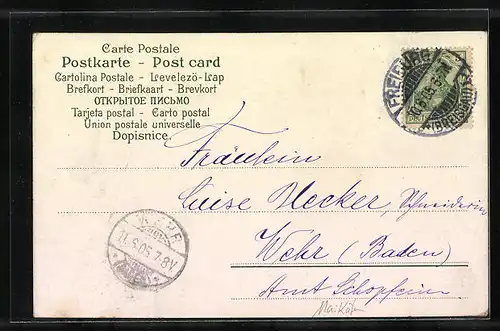 Carte Postale
Postkarte - Post card
Cartolina Postale - Levelező-Lap
Brefkort - Briefkaart - Brevkort
ОТКРЫТОЕ ПИСЬМО
Tarjeta postal - Carto postal
Union postale universelle
Dopisnice.
FREIBURG
(BREISGAU)
Fräulein
Luise Uecker, Schneiderin
Wehr (Baden)
Amt Schopfheim
WEHR
11.5.05.7-8V
BADEN